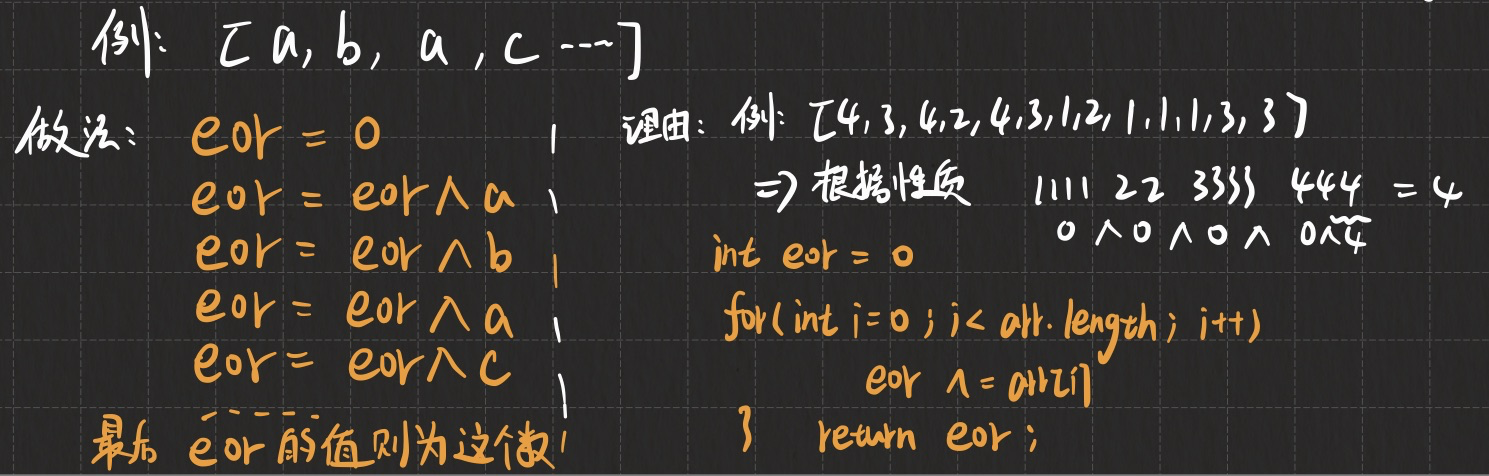 例: [a, b, a, c ----]
做法:
eor = 0
eor = eor ∧ a
eor = eor ∧ b
eor = eor ∧ a
eor = eor ∧ c
-----
最后 eor 的值则为这个数
理由: 例: [4,3,4,2,4,3,1,2,1,1,1,3,3]
=> 根据性质 1111 22 3333 444 = 4
0 ∧ 0 ∧ 0 ∧ 0∧4
int eor = 0
for(int i=0; i< arr.length; i++)
eor ∧= arr[i]
} return eor;